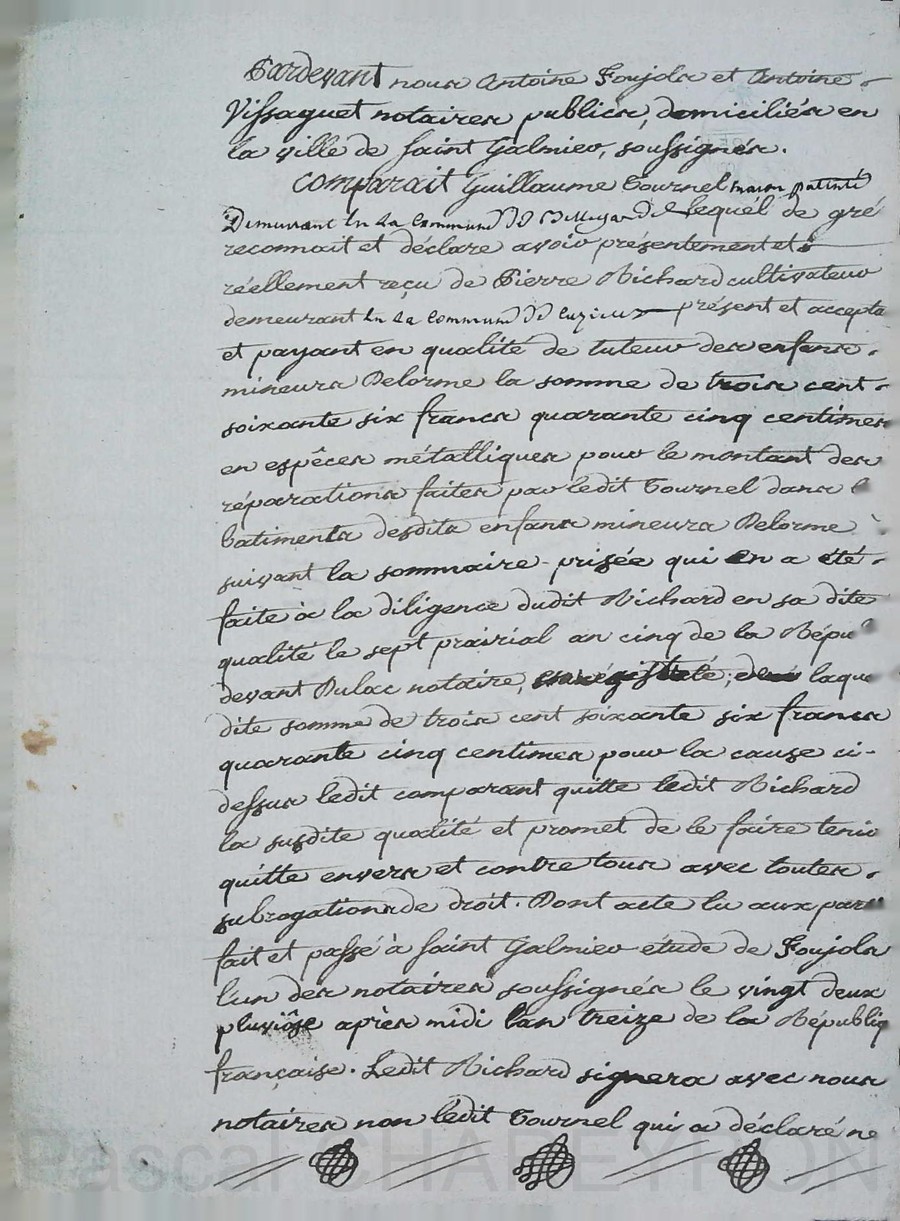 Pardevant nous Antoine Foujols et Antoine
Vissaguet notaires publics, domiciliés en
la ville de Saint Galmier, soussignés.
Comparait Guillaume Tournel maçon patenté
Demeurant en la Commune de lequel de gré
reconnait et déclare avoir présentement et
réellement reçu de Pierre Richard cultivateur
demeurant en la Commune de Cuzieux présent et accepta
et payant en qualité de tuteur des enfans
mineurs Delorme la somme de trois cent
soixante six francs quarante cinq centimes
en espêces métalliques pour le montant des
réparations faites par ledit Tournel dans
batiments desdits enfans mineurs Delorme
suivant la sommaire-prisée qui en a été
faite à la diligence dudit Richard en sa dite
qualité le sept prairial an cinq de la Répu
devant Dulac notaire, laque
dite somme de trois cent soixante six francs
quarante cinq centimes pour la cause ci-
dessus ledit comparant quitte ledit Richard
la susdite qualité et promet de le faire tenir
quitte envers et contre tous avec toutes
subrogations de droit. Dont acte lu aux
fait et passé à Saint Galmier étude de Foujols
l'un des notaires soussignés le vingt deux
pluviôse après midi l'an treize de la Républiq
française. Ledit Richard signera avec nous
notaires non ledit Tournel qui a déclaré ne
Pascal CHAREYRON